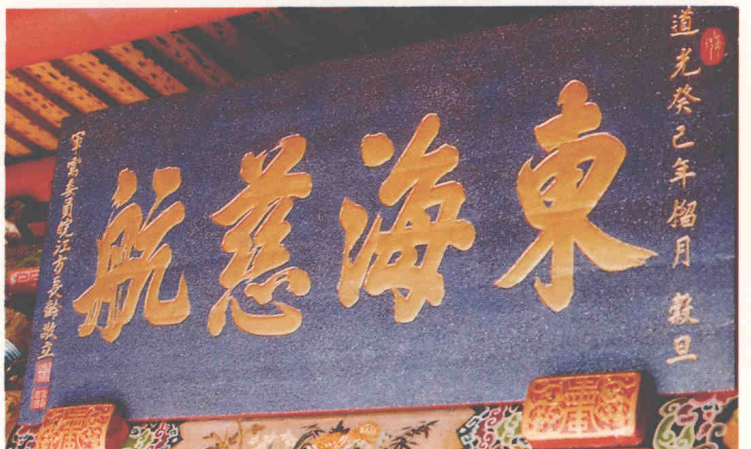 道光癸巳年榴月 穀旦
東海慈航
軍功委員皖江方長齡敬立